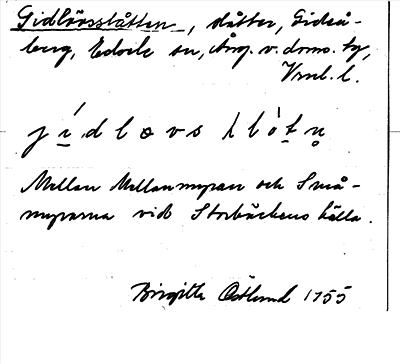 Gidlövsslåtten, slåtter, Gideå-
berg, Edsele sn, Ång. v. doms. tg,
Vrnl. l.
j í d l ə v s l ò t n
Mellan Mellanmyran och Små-
myrarna vid Storbäckens källa.
Birgitta Östlund 1955